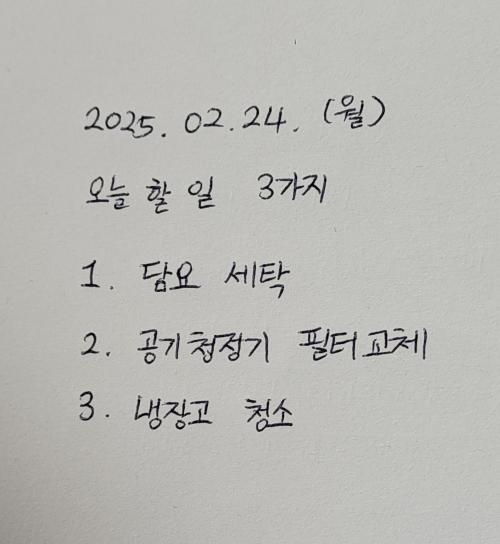 2025. 02. 24. (월)
오늘 할 일 3가지
1. 담요 세탁
2. 공기청정기 필터교체
3. 냉장고 청소